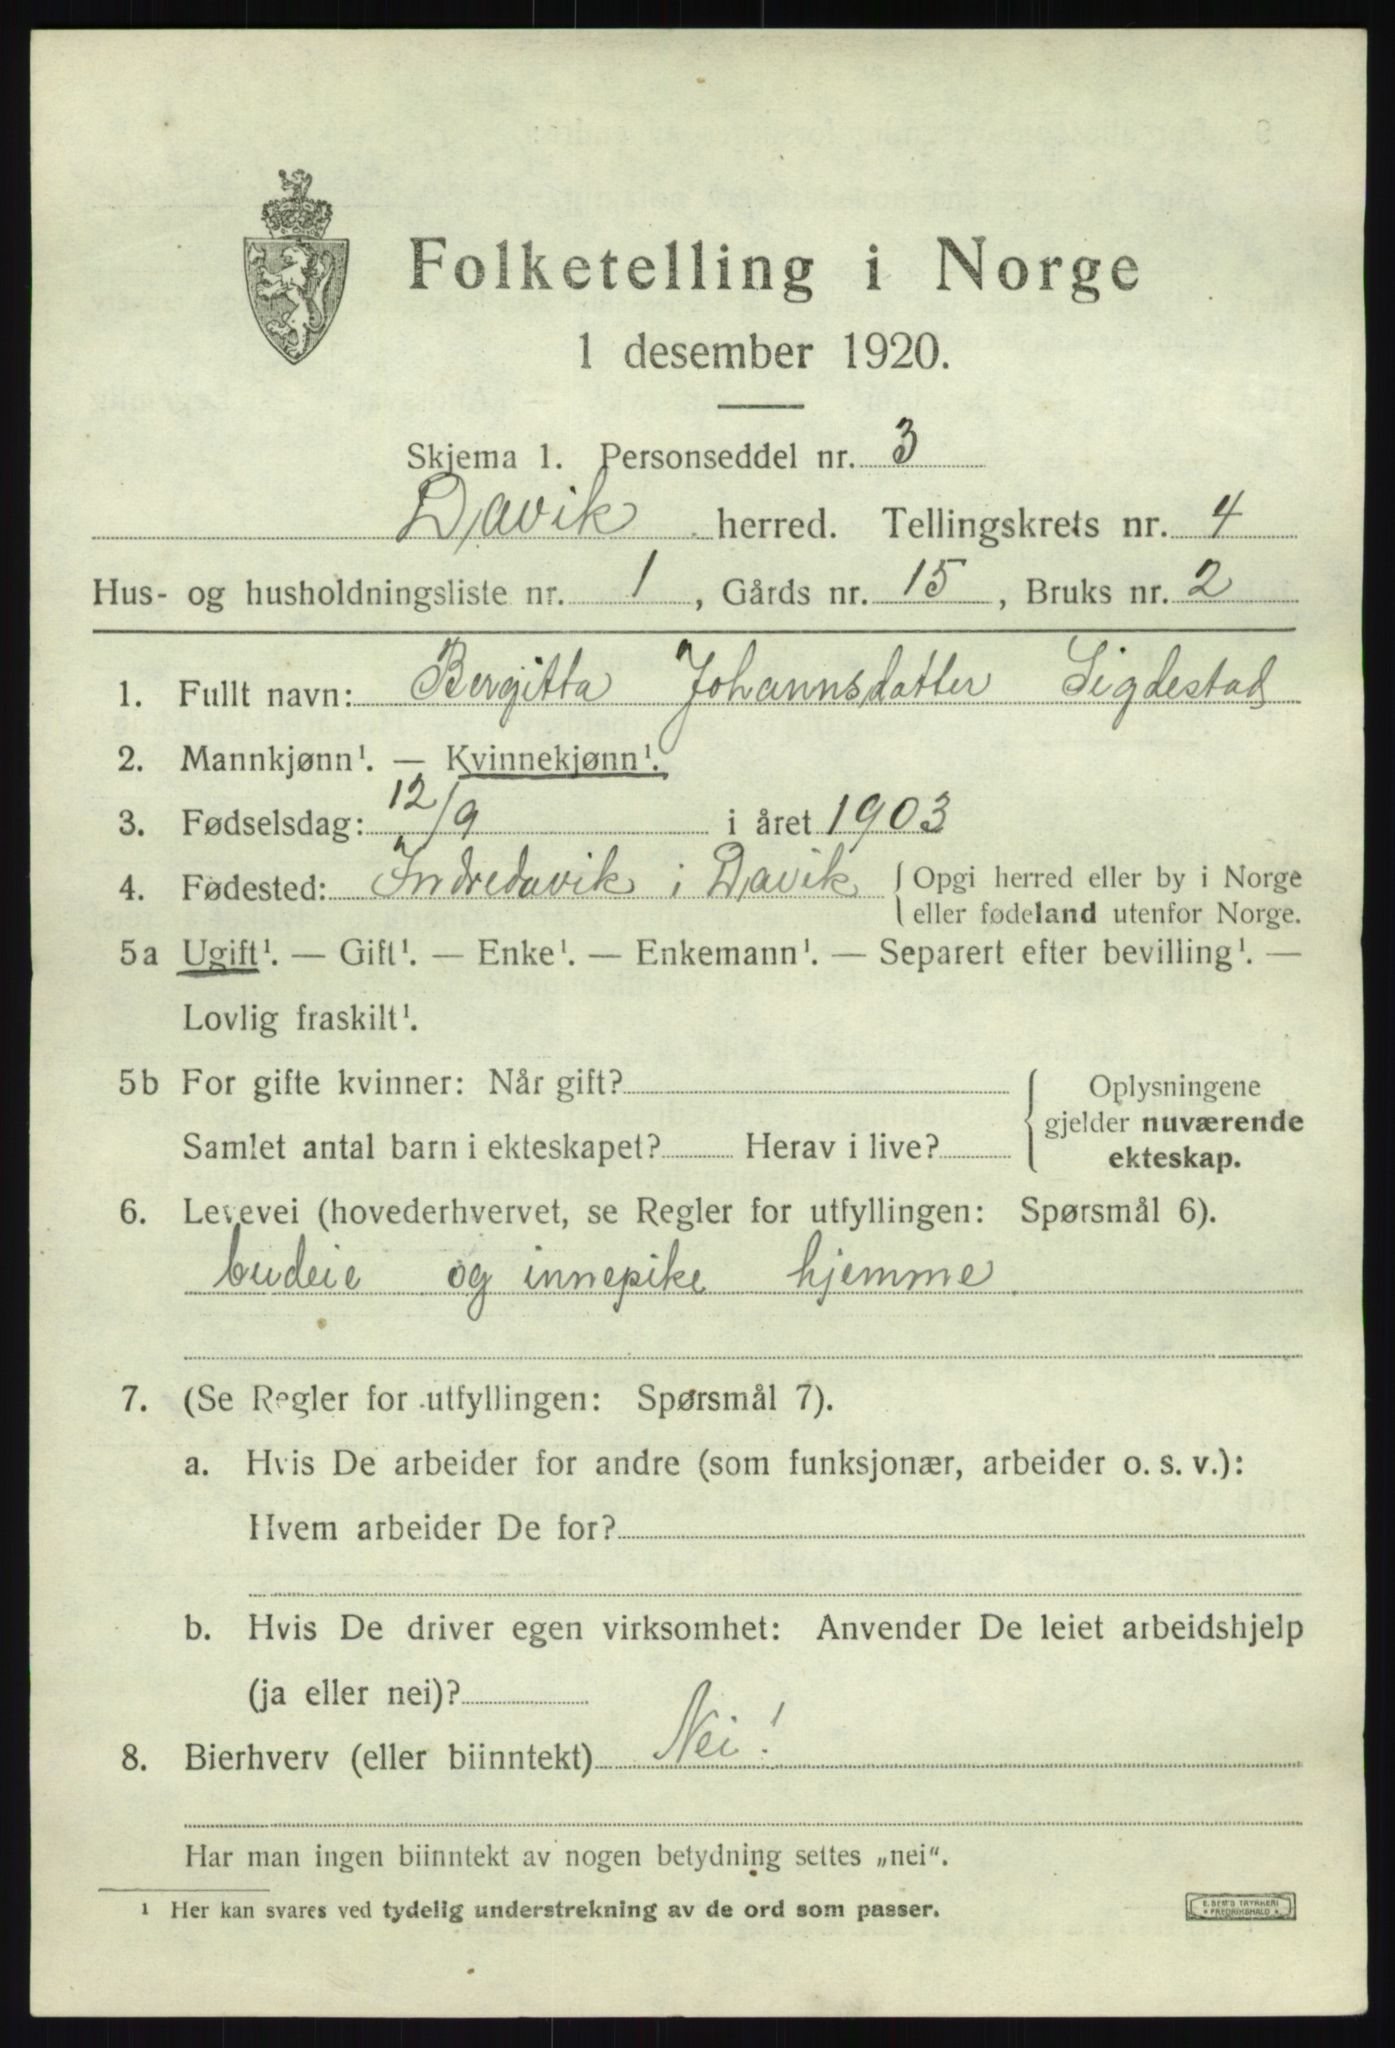 Folketelling i Norge
1 desember 1920.
Skjema 1. Personseddel nr. 3
Davik herred. Tellingskrets nr. 4
Hus- og husholdningsliste nr. 1, Gårds nr. 15, Bruks nr. 2
1. Fullt navn: Bergitta Johannsdatter Sigdestad
2. Mannkjønn¹. — Kvinnekjønn¹.
3. Fødselsdag: 12/9 i året 1903
4. Fødested: Indredavik i Davik { Opgi herred eller by i Norge
eller fødeland utenfor Norge.
5a Ugift¹. — Gift¹. — Enke¹. — Enkemann¹. — Separert efter bevilling¹. —
Lovlig fraskilt¹.
5b For gifte kvinner: Når gift?
Samlet antal barn i ekteskapet? Herav i live?
{ Oplysningene
gjelder nuværende
ekteskap.
6. Levevei (hovederhvervet, se Regler for utfyllingen: Spørsmål 6).
budeie og innepike hjemme
7. (Se Regler for utfyllingen: Spørsmål 7).
a. Hvis De arbeider for andre (som funksjonær, arbeider o. s. v.):
Hvem arbeider De for?
b. Hvis De driver egen virksomhet: Anvender De leiet arbeidshjelp
(ja eller nei)?
8. Bierhverv (eller biinntekt) Nei!
Har man ingen biinntekt av nogen betydning settes „nei".
¹ Her kan svares ved tydelig understrekning av de ord som passer.
E. SEM'S TRYKKERI
* FREDRIKSHALD *